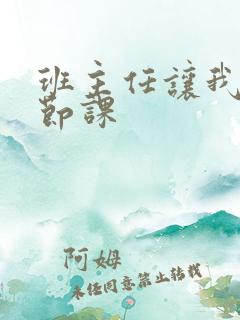 班主任讓我
節課
阿姆
未经同意禁止转载